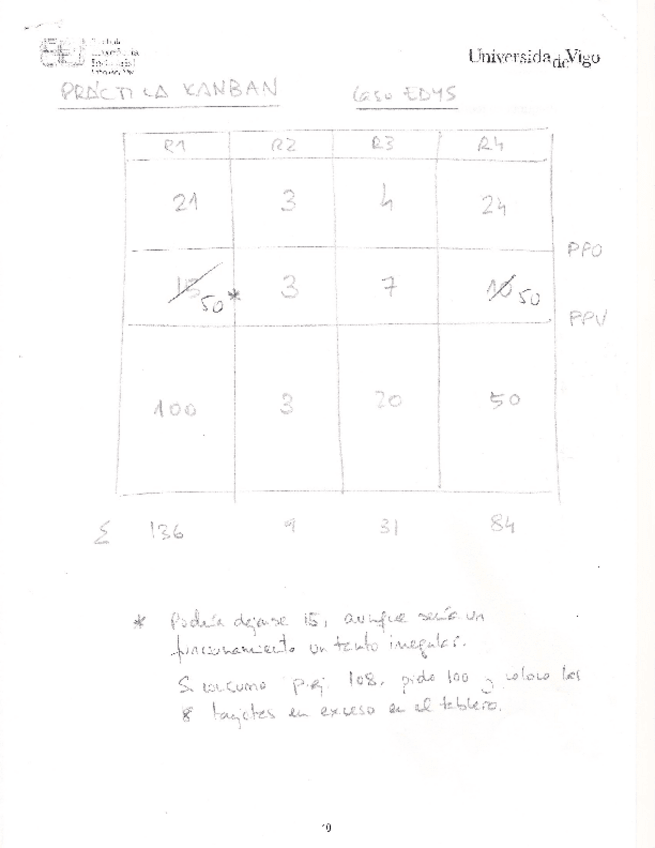 Universidade Vigo
PRÁCTICA KANBAN Caso EDYS
R1 R2 R3 R4
21 3 4 24
PPO
15 50 * 3 7 10 50
PPV
100 3 20 50
Σ 136 9 31 84
* Podría dejarse 15, aunque sería un
funcionamiento un tanto irregular.
Si consumo p.ej. 108, pido 100 y coloco las
8 tarjetas en exceso en el tablero.
10